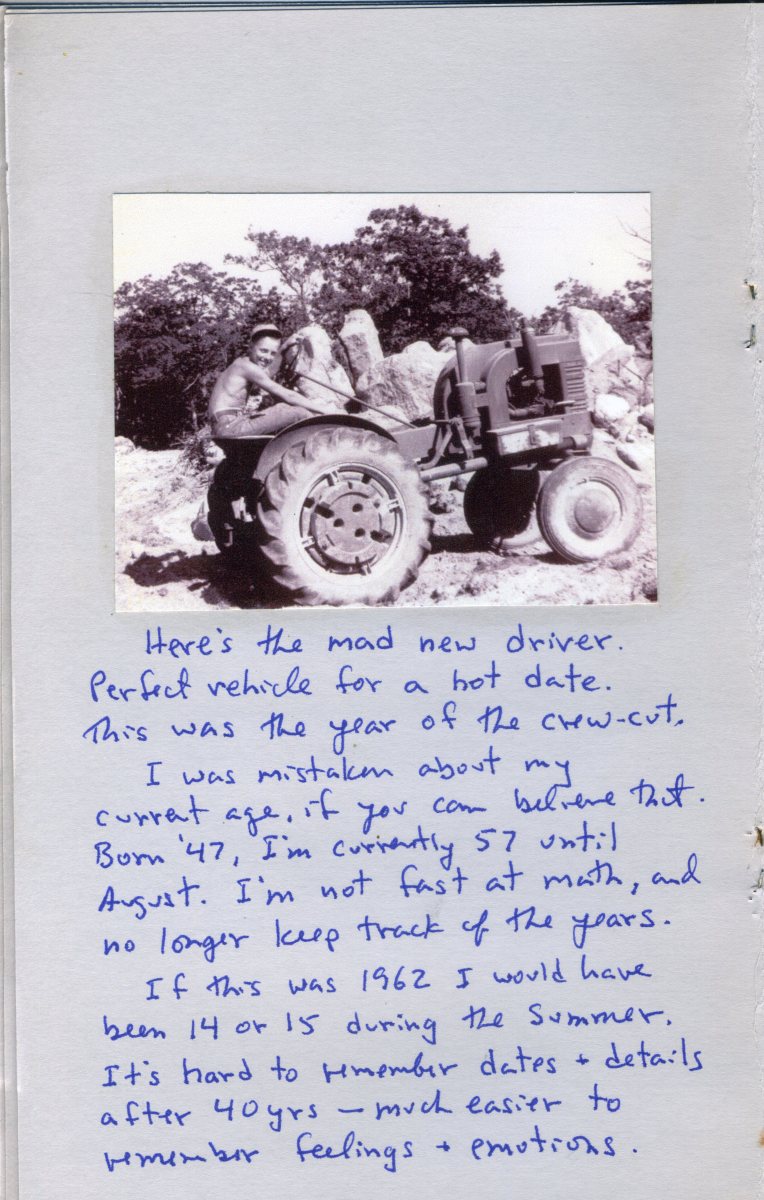 Here's the mad new driver.
Perfect vehicle for a hot date.
This was the year of the crew-cut.
I was mistaken about my
current age, if you can believe that.
Born '47, I'm currently 57 until
August. I'm not fast at math, and
no longer keep track of the years.
If this was 1962 I would have
been 14 or 15 during the Summer.
It's hard to remember dates + details
after 40 yrs — much easier to
remember feelings + emotions.